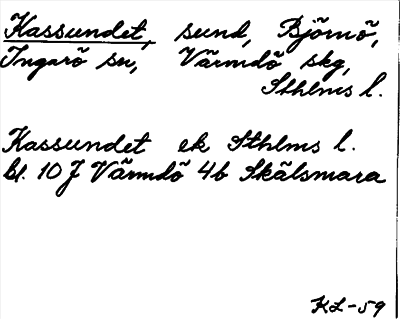 Kassundet, sund, Björnö,
Ingarö sn, Värmdö skg,
Sthlms l.
Kassundet ek Sthlms l.
bl. 10 J Värmdö 4b Skälsmara
KL-59